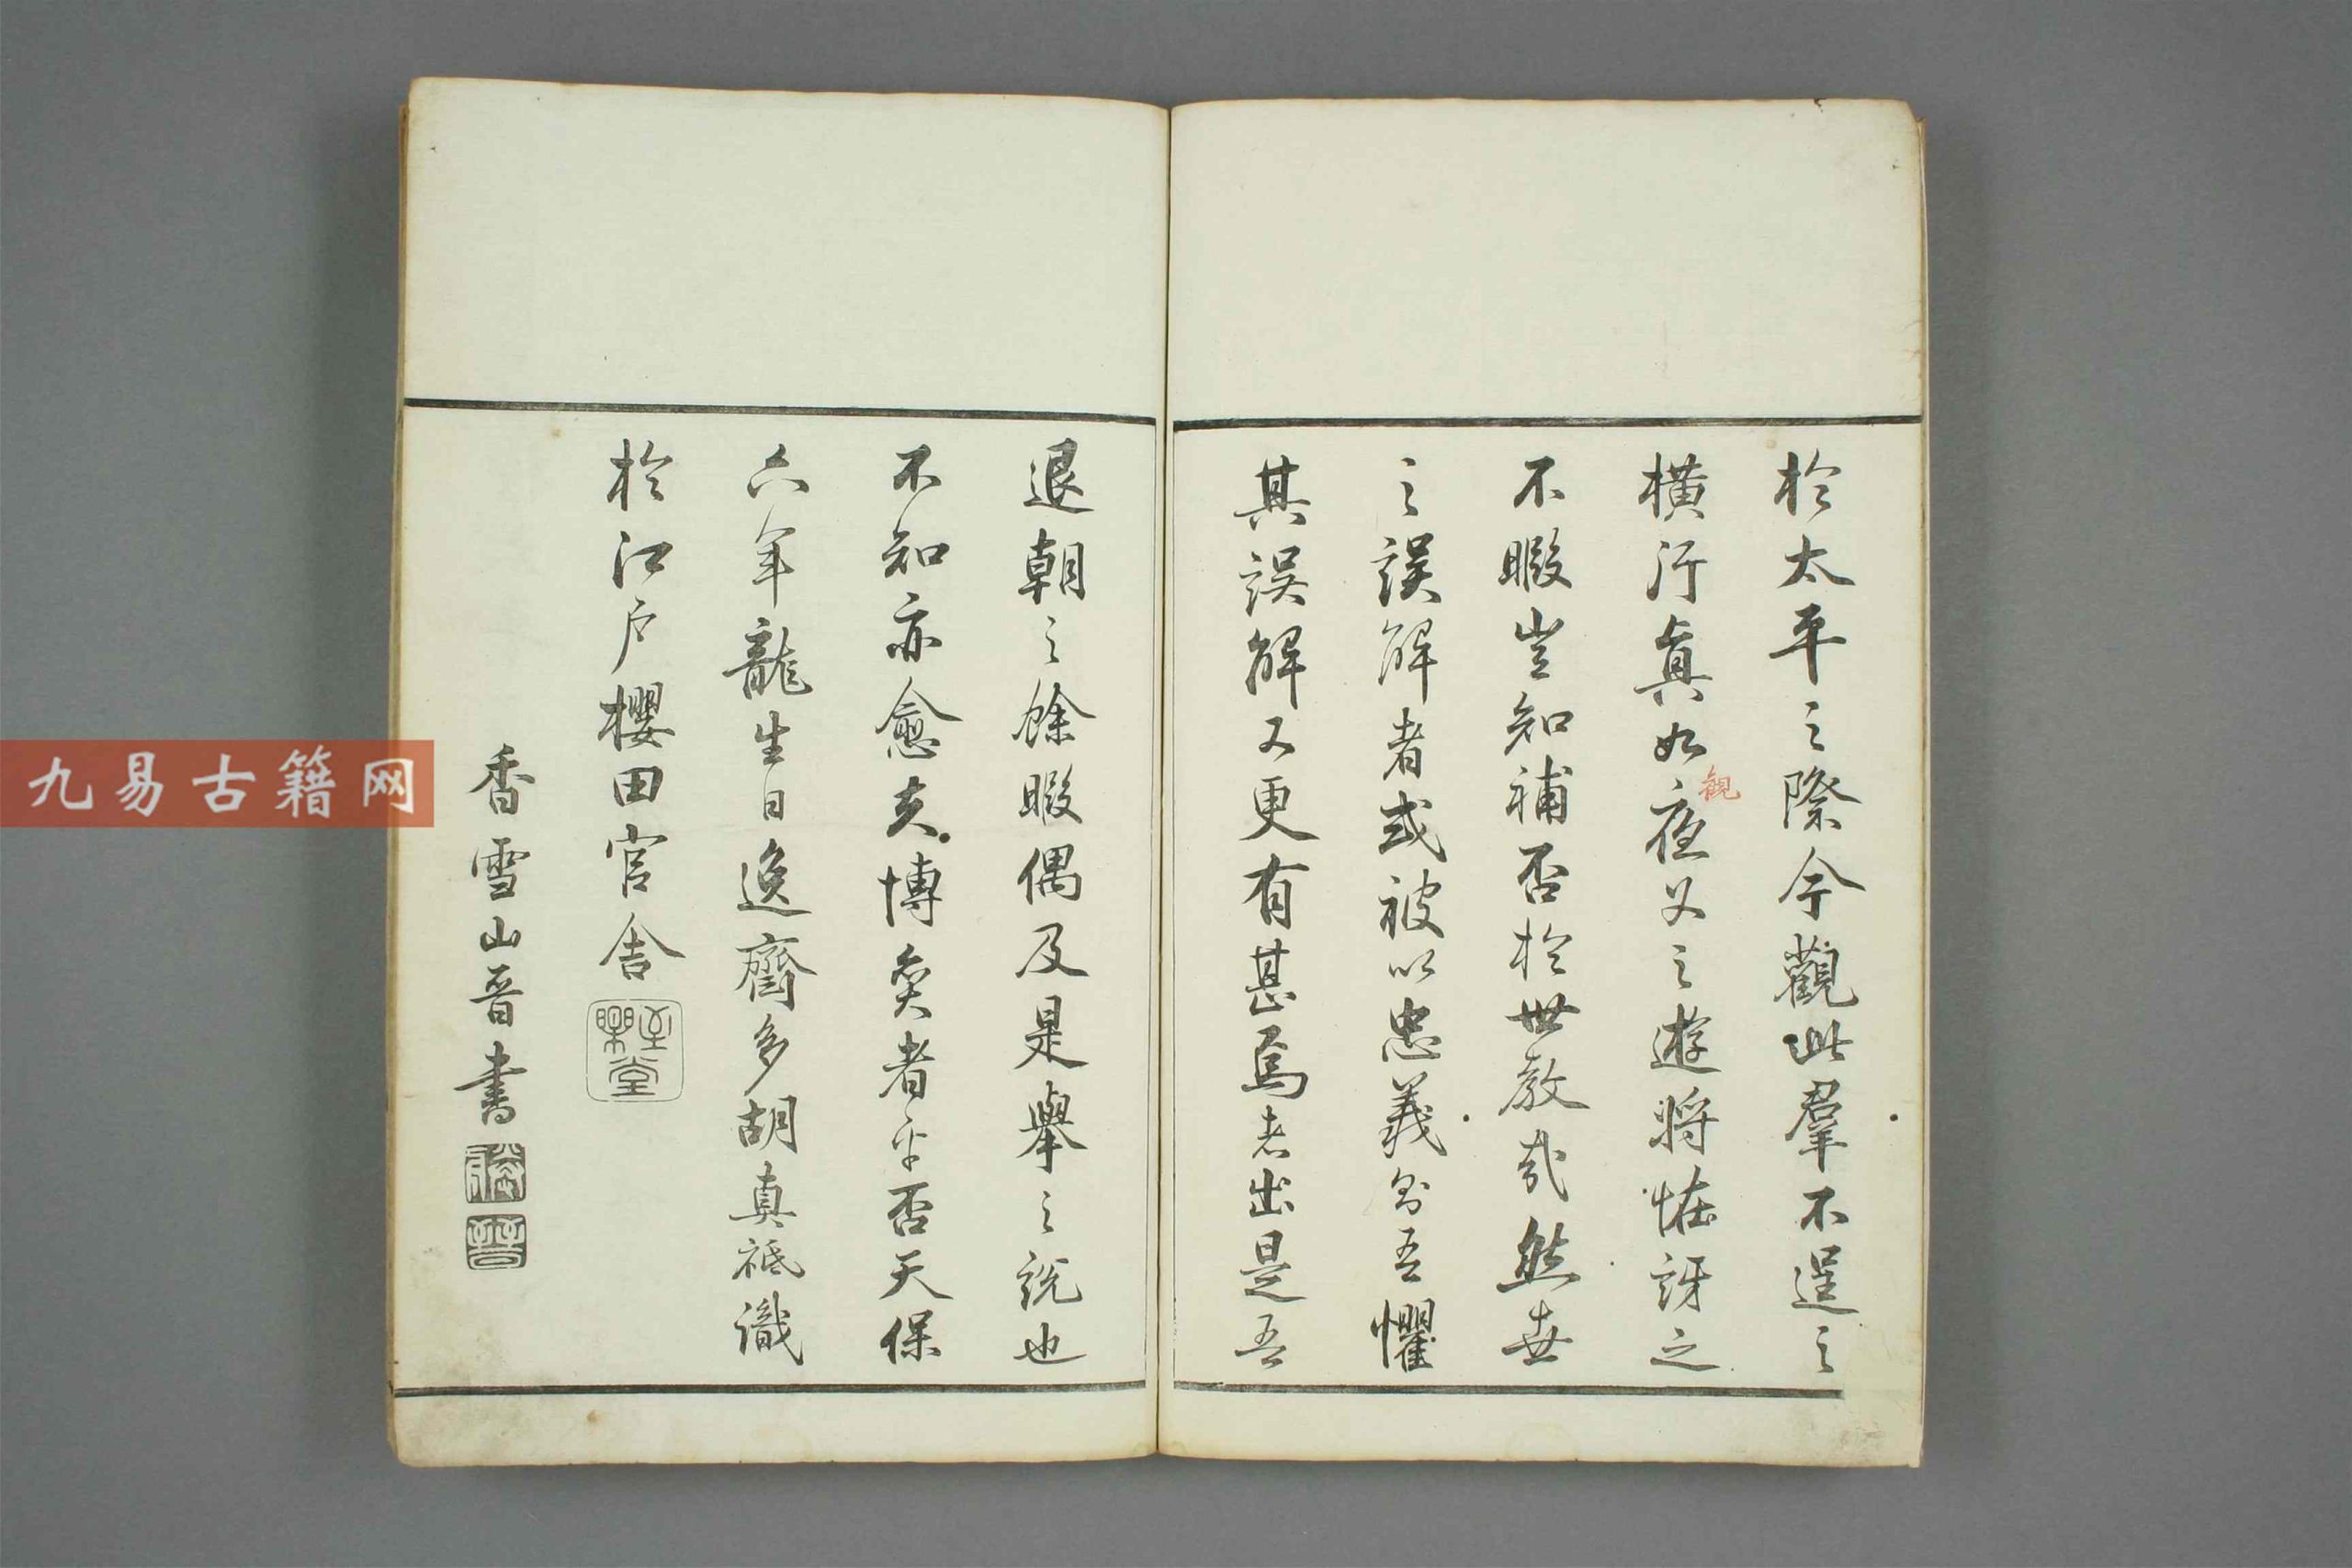 於太平之際今觀此羣不逞之
橫行真如夜叉之遊將恠訝之
觀
不暇豈知補否於世教哉然世
之誤解者或被以忠義多吾懼
其誤解又更有甚焉者出是吾
退朝之餘暇偶及是舉之說也
不知亦愈夫博奕者乎否天保
六年龍生日逸齋多胡真祗識
於江戶櫻田官舍
至樂堂
香雪山晉書
九易古籍网